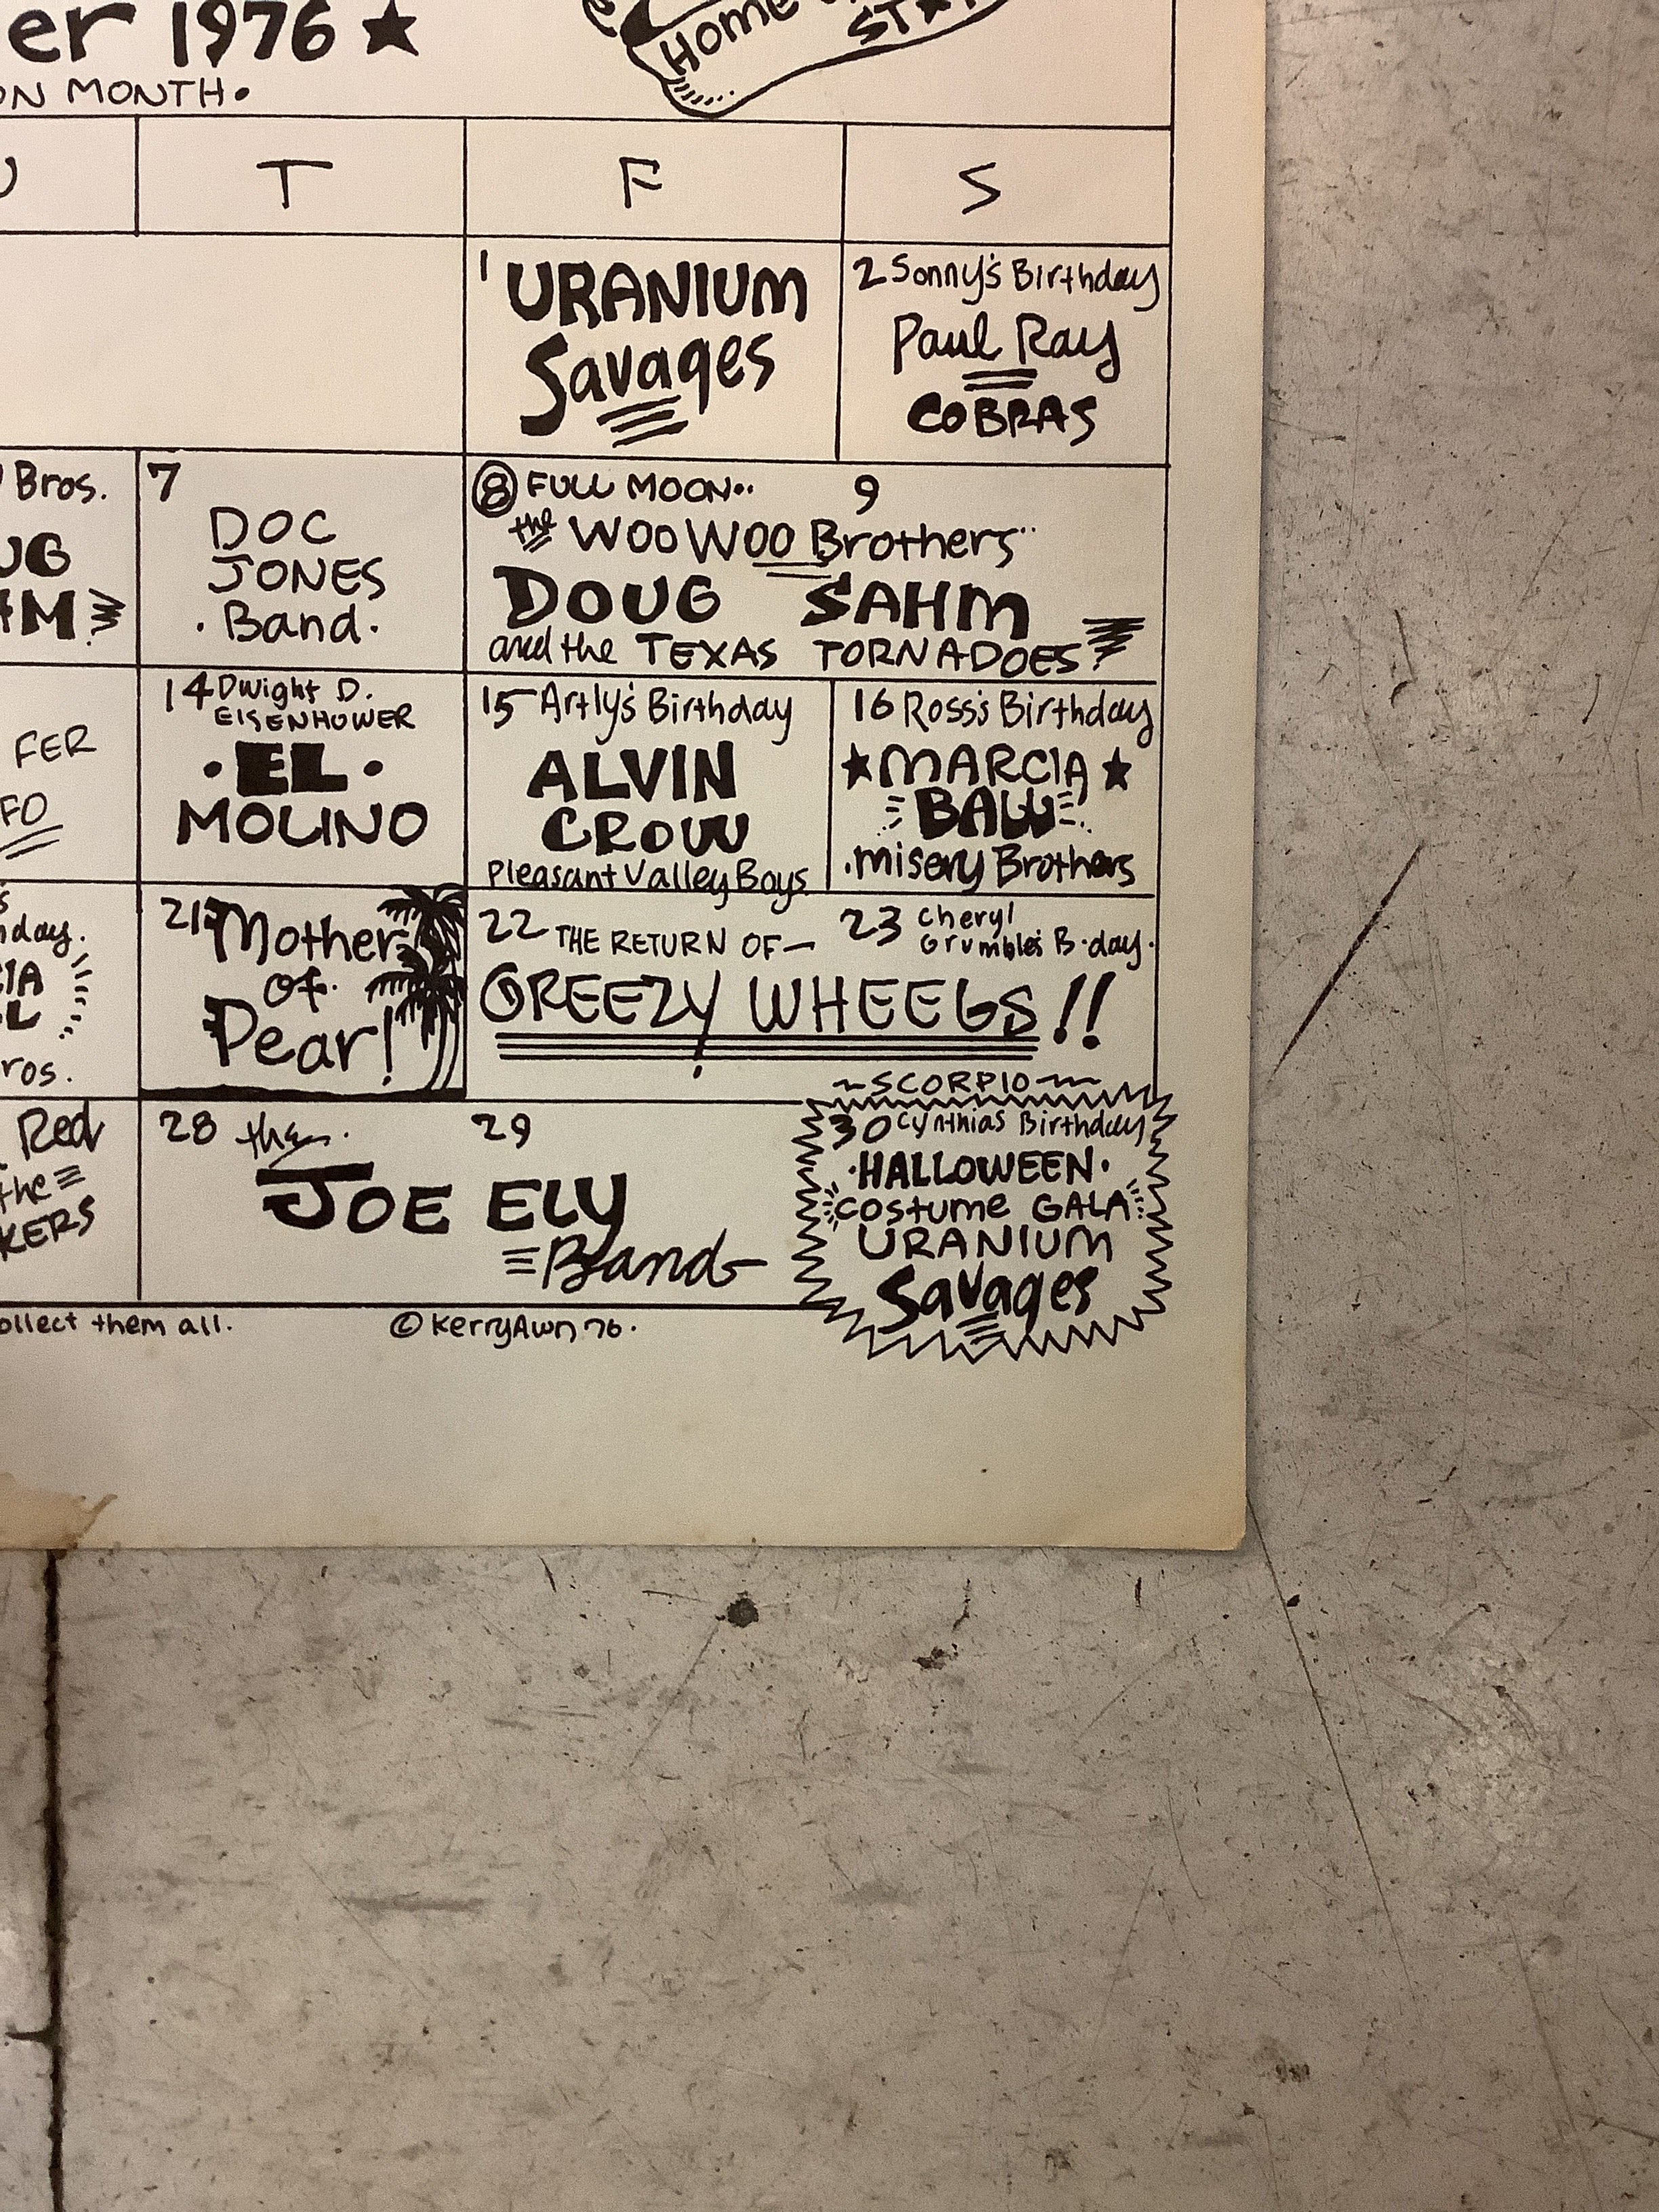 er 1976 ★
ON MONTH.
HOME
ST★
T
F
S
1
URANIUM
Savages
2 Sonny's Birthday
Paul Ray
COBRAS
Bros.
UG
M
7
DOC
JONES
. Band.
8 FULL MOON..
9
the WOO WOO Brothers
DOUG SAHM
and the TEXAS TORNADOES
FER
FO
14 Dwight D.
EISENHOWER
. EL .
MOLINO
15 Artly's Birthday
ALVIN
CROW
Pleasant Valley Boys
16 Ross's Birthday
★ MARCIA ★
BALL
. misery Brothers
day.
IA
L
ros.
21 Mother
of
Pearl!
22 THE RETURN OF—
23 Cheryl
Grumbles B.day.
GREEZY WHEELS!!
Red
the
KERS
28 the
29
JOE ELY
Band
~SCORPIO~
30 Cynthias Birthday
. HALLOWEEN .
costume GALA
URANIUM
Savages
ollect them all.
© Kerry Awn 76.